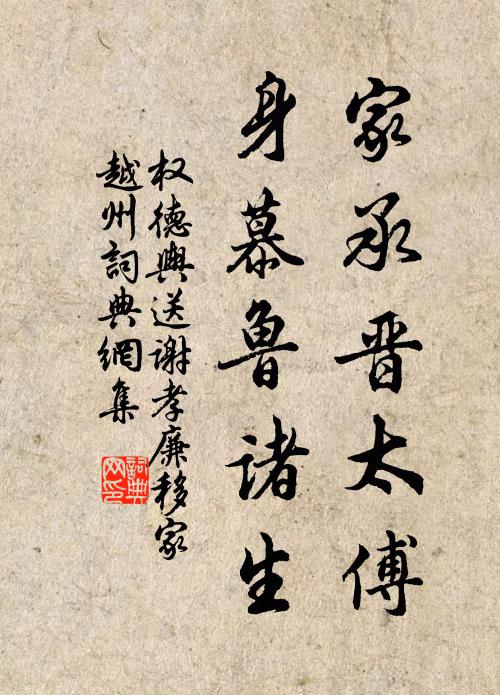 家承晋太傅
身慕鲁诸生
权德舆送谢孝廉移家
越州词典網集
詞典网印